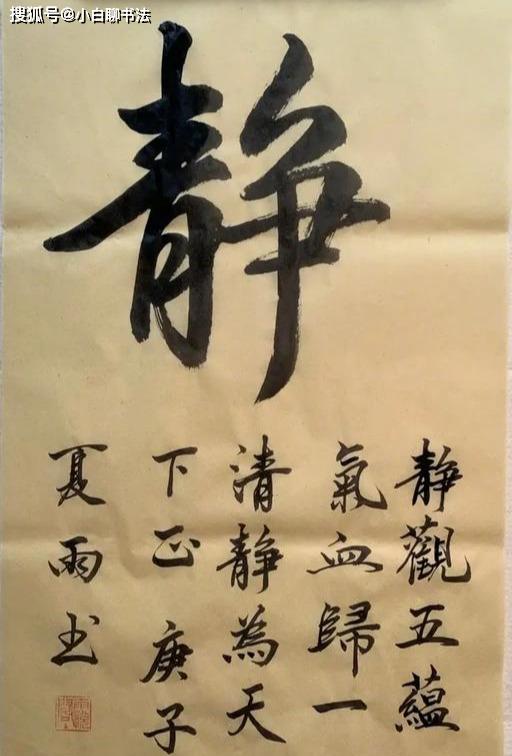 搜狐号@小白聊书法
静
靜觀五蘊
氣血歸一
清靜為天
下正 庚子
夏雨书